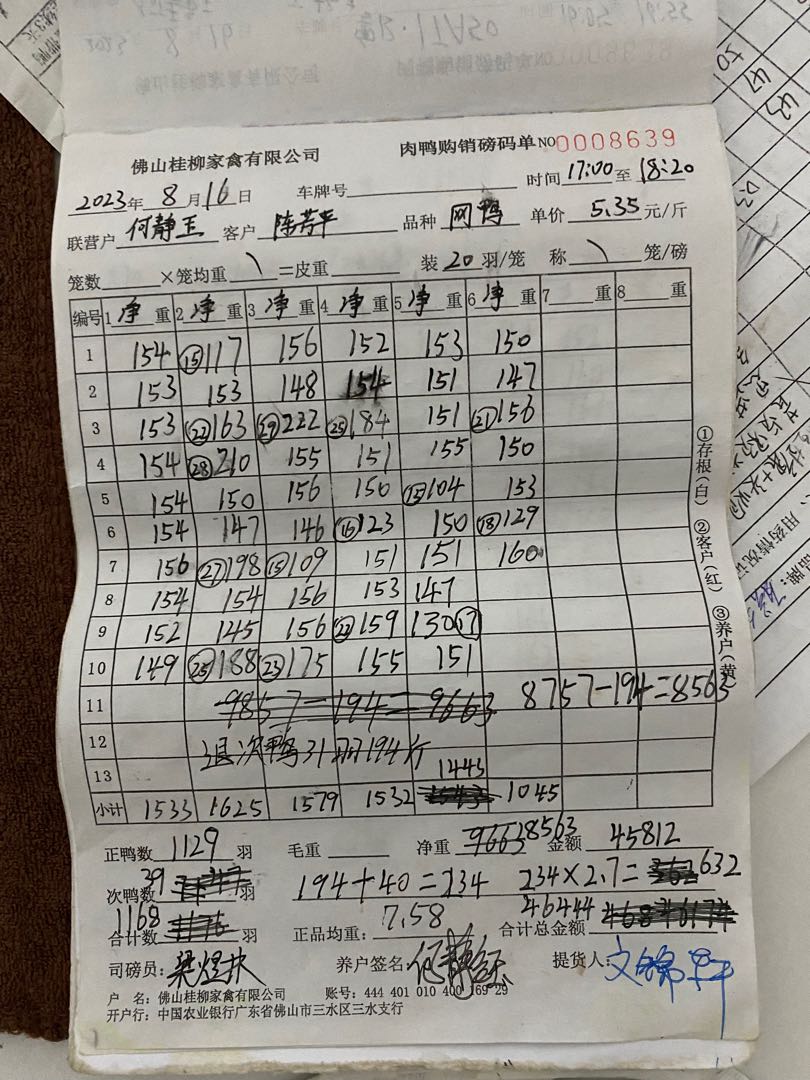 佛山桂柳家禽有限公司 肉鸭购销磅码单 NO 0008639
2023年 8 月 16 日 车牌号 时间 17:00 至 18:20
联营户 何静玉 客户 陈芳平 品种 网鸭 单价 5.35 元/斤
笼数 ×笼均重 \ =皮重 装 20 羽/笼 称 \ 笼/磅
编号 1 净 重 2 净 重 3 净 重 4 净 重 5 净 重 6 净 重 7 重 8 重
1 154 ⑮117 156 152 153 150
2 153 153 148 154 151 147
3 153 ㉒163 ㉙222 ㉕184 151 ㉑156
4 154 ㉘210 155 151 155 150
5 154 150 156 150 ⑮104 153
6 154 147 146 ⑯123 150 ⑱129
7 156 ㉗198 ⑮109 151 151 160
8 154 154 156 153 147
9 152 145 156 ㉒159 130⑰
10 149 ㉕188 ㉓175 155 151
11 9857-194=9663 8757-194=8563
12 退次鸭31羽194斤
13 1443
小计 1533 1625 1579 1532 1543 1045
正鸭数 1129 羽 毛重 净重 9663 8563 金额 45812
次鸭数 39 羽 194+40=234 234×2.7= 632
合计数 1168 羽 正品均重: 7.58 合计总金额 46444
司磅员: 养户签名: 提货人:
户 名: 佛山桂柳家禽有限公司 账号: 444 401 010 400 169 29
开户行: 中国农业银行广东省佛山市三水区三水支行
①存根(白) ②客户(红) ③养户(黄)
用药情况